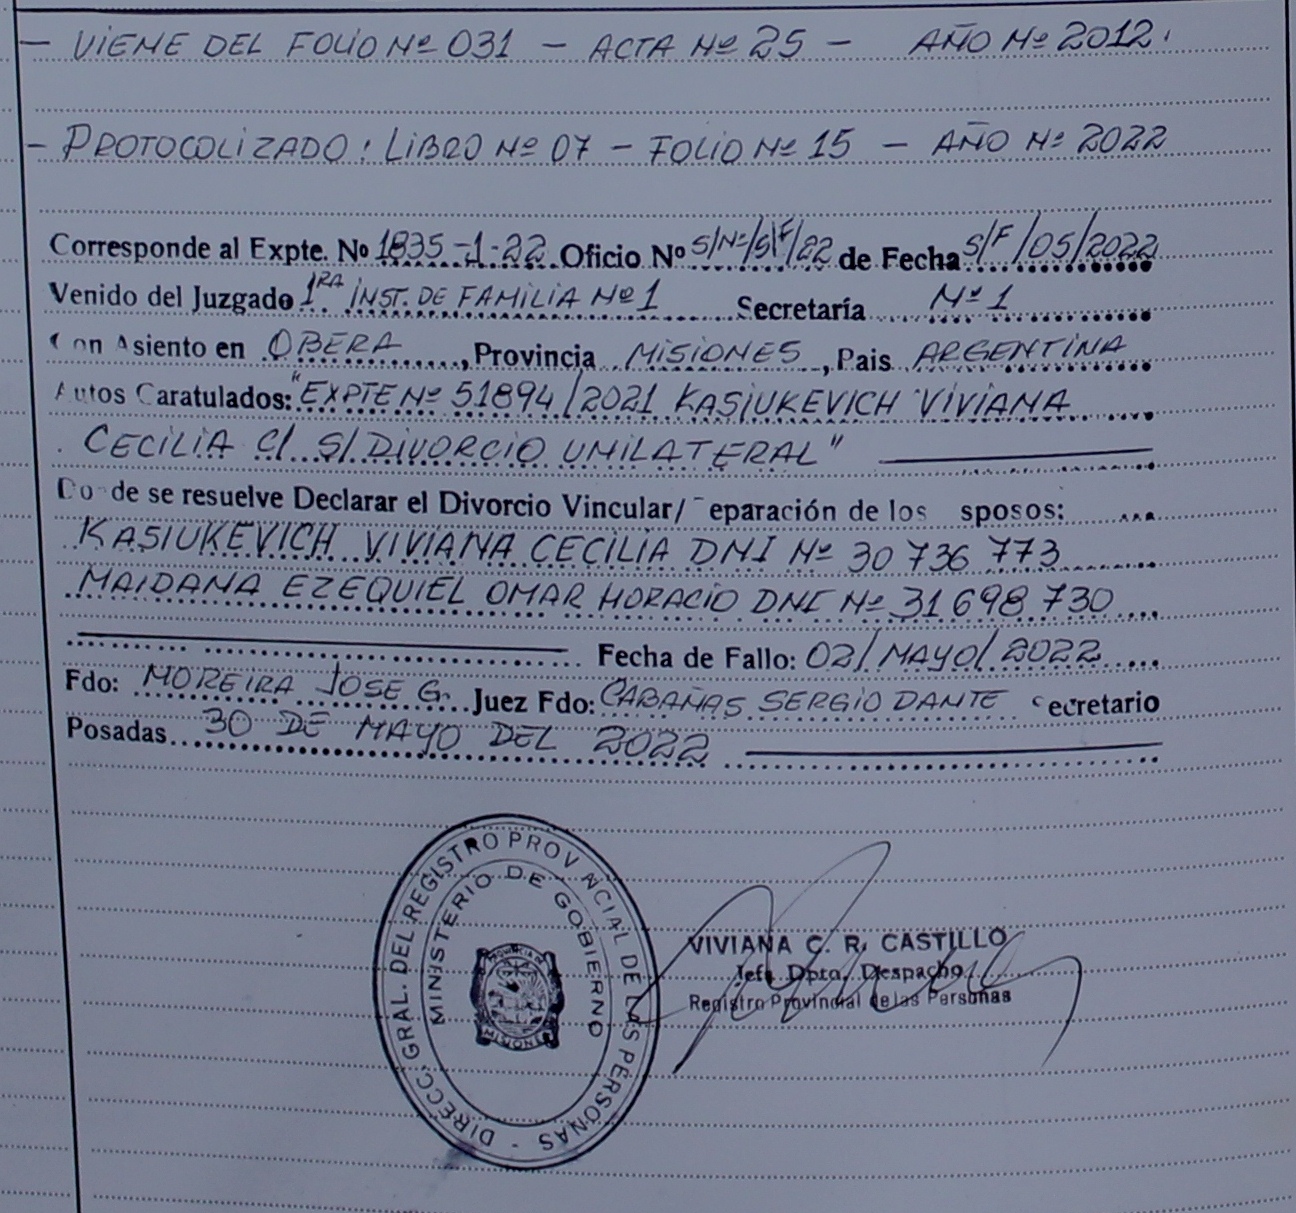 — VIENE DEL FOLIO Nº 031 — ACTA Nº 25 — AÑO Nº 2012.
— PROTOCOLIZADO: LIBRO Nº 07 — FOLIO Nº 15 — AÑO Nº 2022
Corresponde al Expte. Nº 1835-1-22 Oficio Nº S/Nº/S/F/22 de Fecha S/F/05/2022
Venido del Juzgado 1RA INST. DE FAMILIA Nº 1 Secretaría Nº 1
Con Asiento en OBERA, Provincia MISIONES, Pais ARGENTINA
Autos Caratulados: "EXPTE Nº 51894/2021 KASIUKEVICH VIVIANA
CECILIA C/ S/ DIVORCIO UNILATERAL"
Donde se resuelve Declarar el Divorcio Vincular/ eparación de los sposos:
KASIUKEVICH VIVIANA CECILIA DNI Nº 30 736 773
MAIDANA EZEQUIEL OMAR HORACIO DNI Nº 31 698 730
Fecha de Fallo: 02/MAYO/2022
Fdo: MOREIRA JOSE G. Juez Fdo: CABAÑAS SERGIO DANTE Secretario
Posadas 30 DE MAYO DEL 2022
DIRECC. GRAL. DEL REGISTRO PROVINCIAL DE LAS PERSONAS -
MINISTERIO DE GOBIERNO
PROVINCIA DE
MISIONES
VIVIANA C. R. CASTILLO
Jefa Dpto. Despacho
Registro Provincial de las Personas